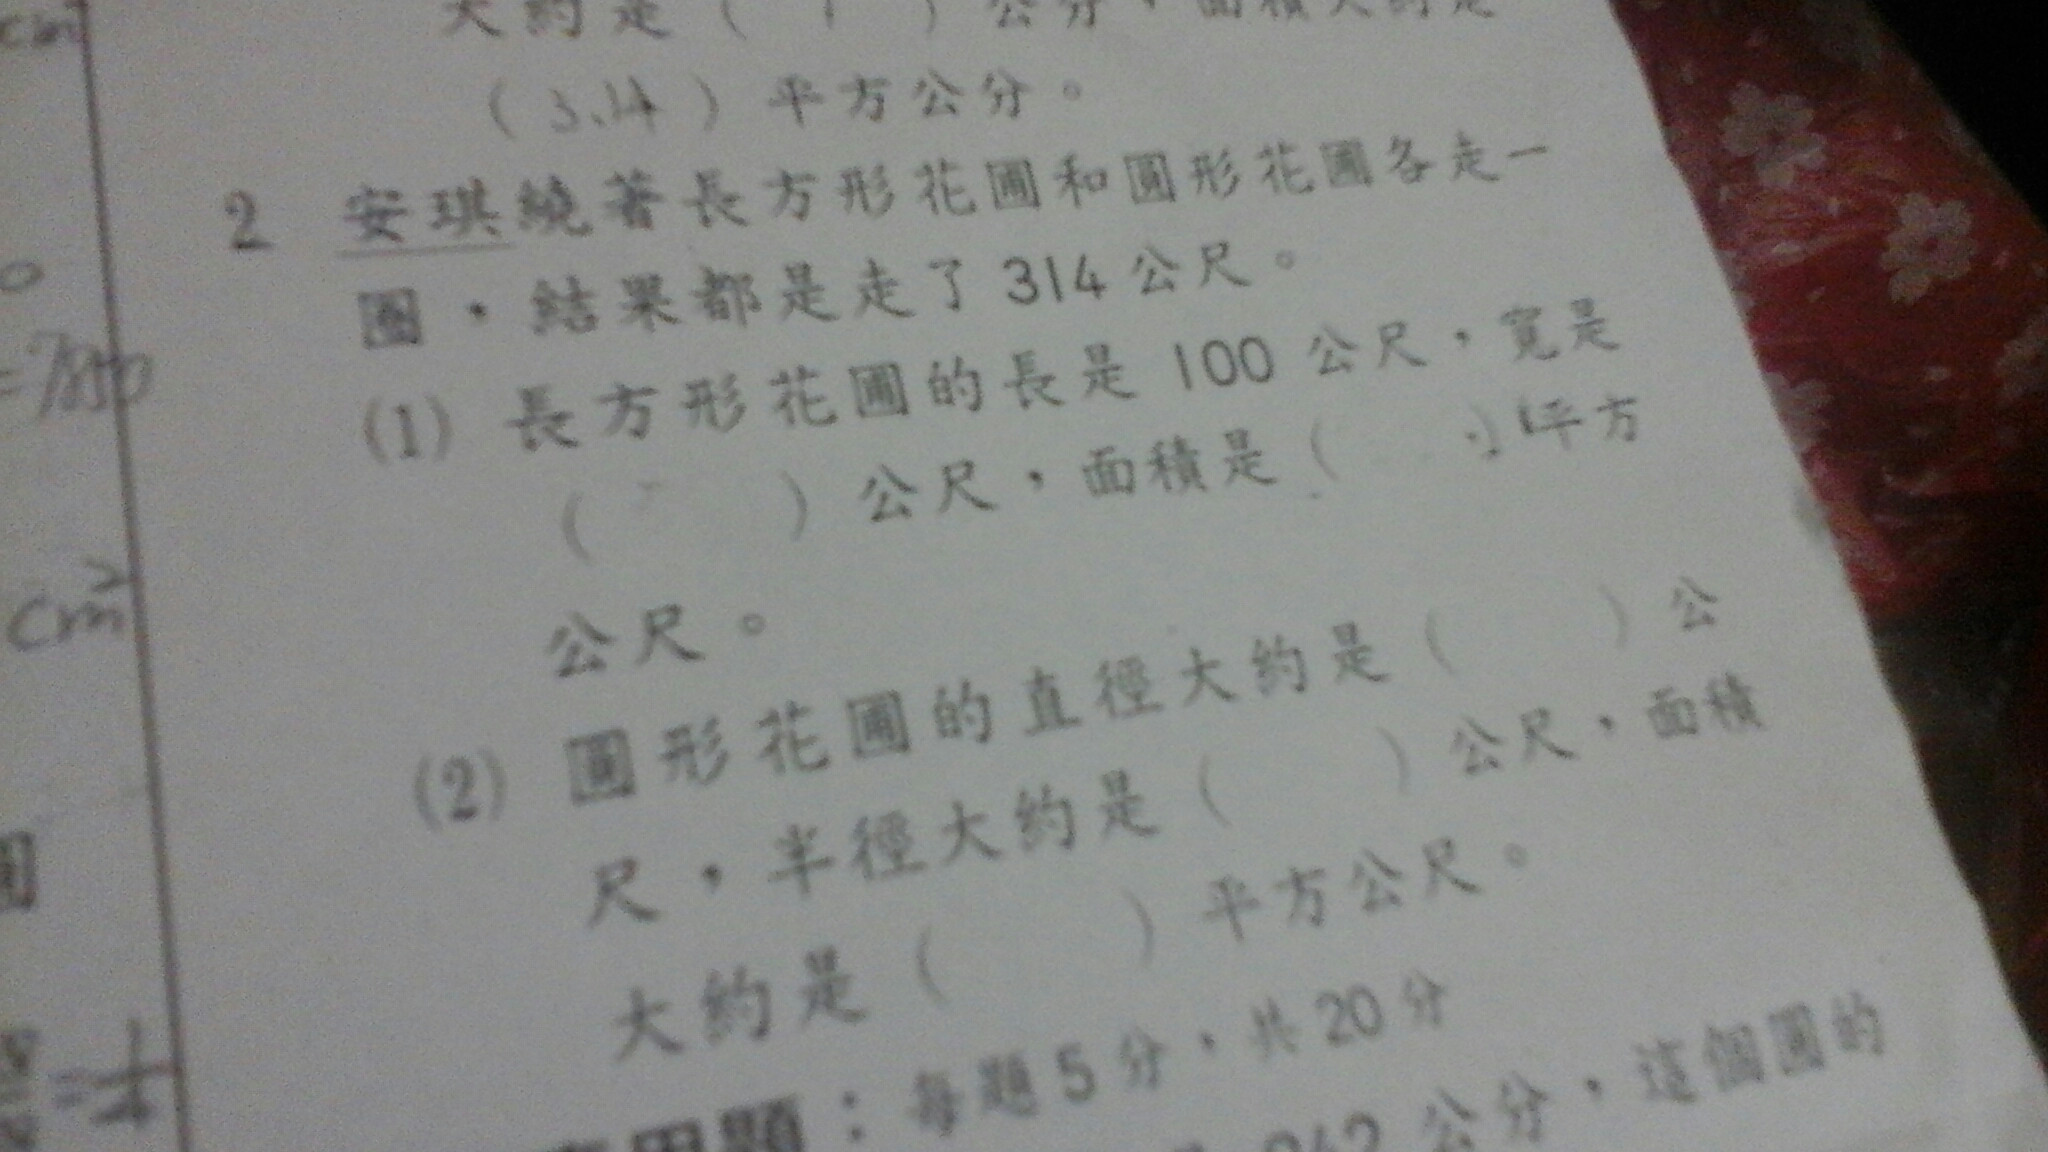 cm
大約是（ 1 ）公分，面積大約是
（3.14）平方公分。
2 安琪繞著長方形花圃和圓形花圃各走一
圈，結果都是走了 314 公尺。
(1) 長方形花圃的長是 100 公尺，寬是
（ ）公尺，面積是（ ）平方
公尺。
(2) 圓形花圃的直徑大約是（ ）公
尺，半徑大約是（ ）公尺，面積
大約是（ ）平方公尺。
：每題 5 分，共 20 分
公分，這個圓的
=7850
cm²
圓